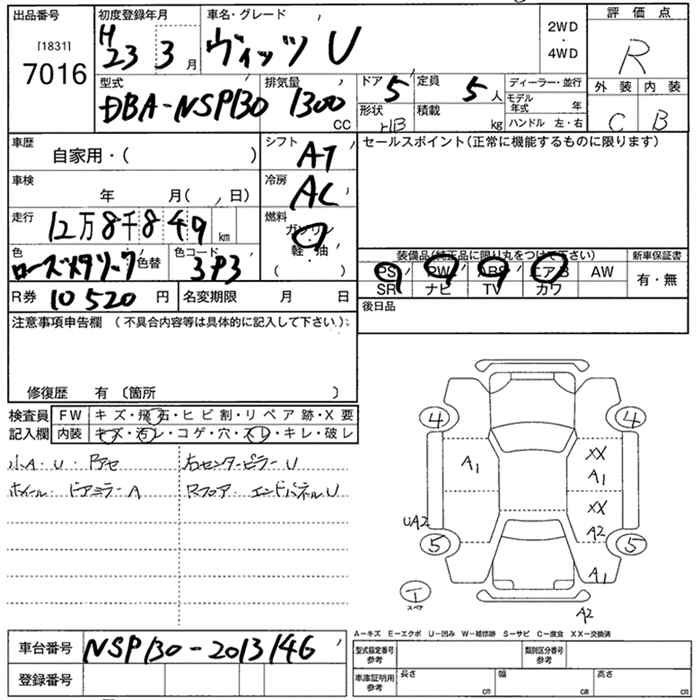 出品番号 初度登録年月 車名・グレード 2WD・4WD 評価点
[1831] 7016 H23 3月 ヴィッツ U R
型式 排気量 ドア 5 定員 5人 ディーラー・並行 外装 内装
DBA-NSP130 1300 CC 形状 積載 kg モデル年式 年 ハンドル 左・右 C B
車歴 自家用・( ) シフト AT セールスポイント(正常に機能するものに限ります)
車検 年 月( 、日) 冷房 AC
走行 12万8千849 km 燃料 ガソリン 軽・油 ( )
色 色替 色コード 3P3 装備品(純正品に限り丸をつけて下さい) 新車保証書
PS PW ABS エアB AW 有・無
SR ナビ TV カワ
R券 10520円 名変期限 月 日 後日品
注意事項申告欄 (不具合内容等は具体的に記入して下さい。)
修復歴 有 〔箇所 〕
検査員 FW キズ・飛石・ヒビ割・リペア跡・X要
記入欄 内装 キズ・汚レ・コゲ・穴・スレ・キレ・破レ
小A・U・ 右センターピラーU
ホイール・ドアミラーA Rフロア・エンドパネルU
4 4
A1 XX
A1
XX
UA2 A2
5 5
A1
T スペア A2
A-キズ E-エクボ U-凹み W-補修跡 S-サビ C-腐食 XX-交換済
車台番号 NSP130-2013146 型式指定番号 参考 類別区分番号 参考
登録番号 車庫証明用 参考 長さ cm 幅 cm 高さ cm